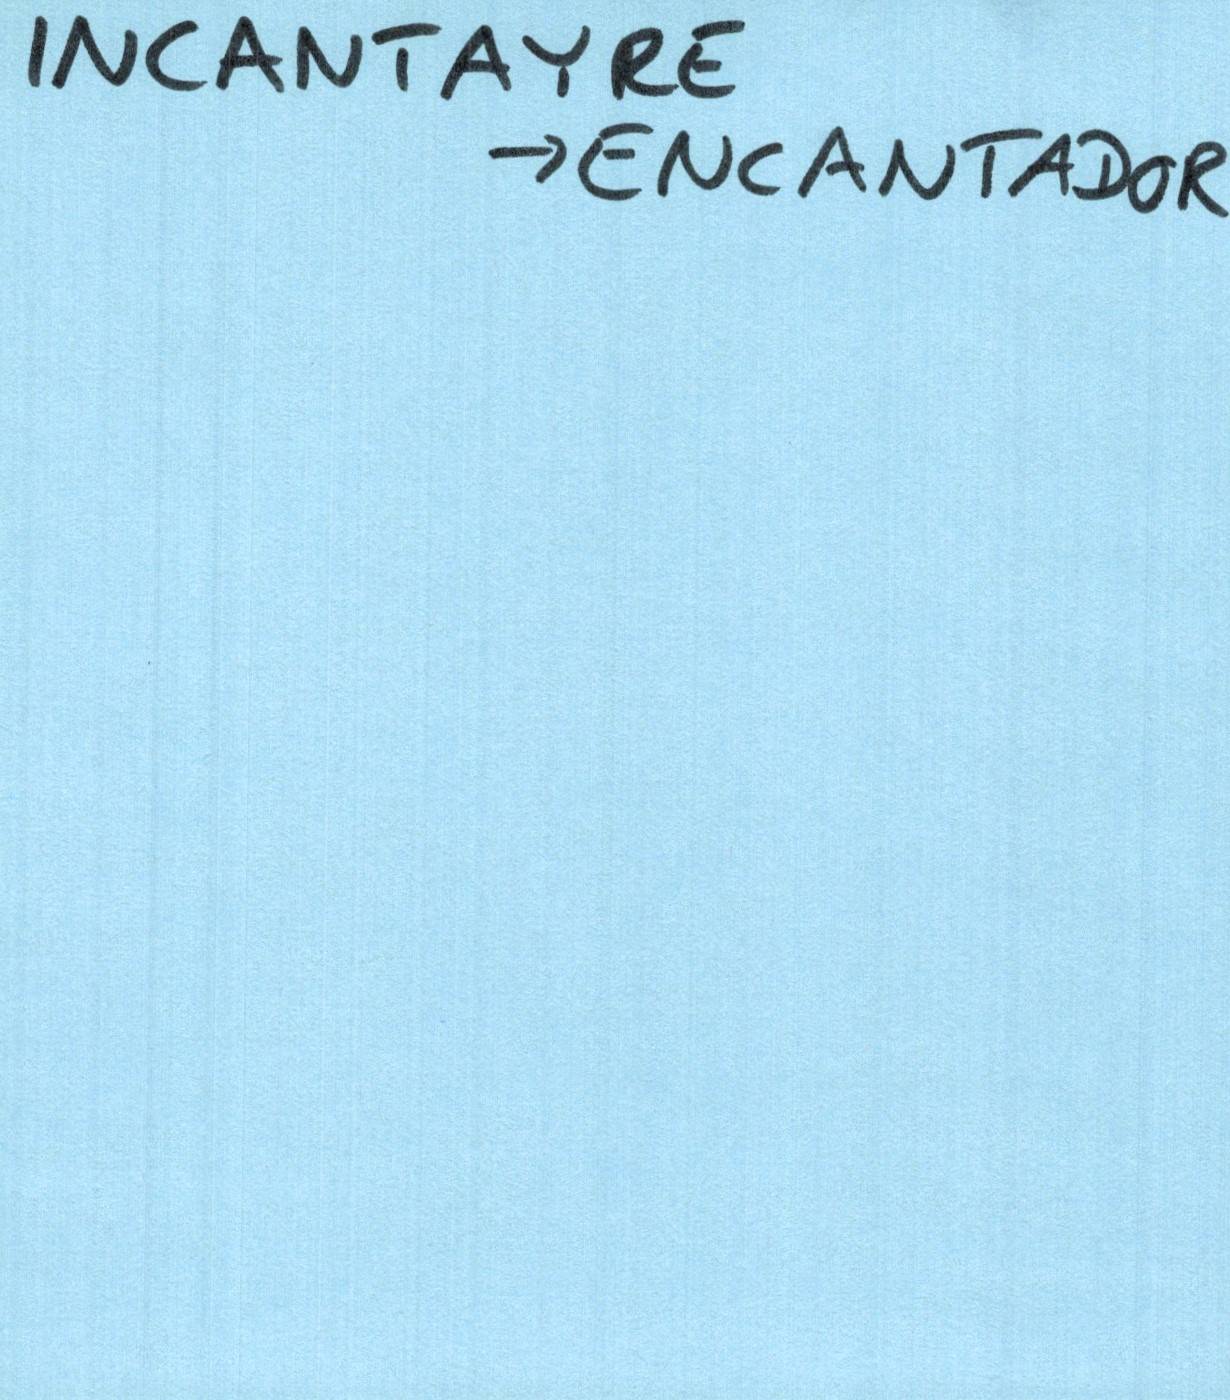 INCANTAYRE
→ENCANTADOR